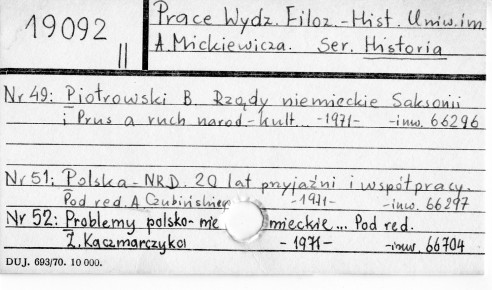 19092
II
Prace Wydz. Filoz.-Hist. Uniw. im.
A. Mickiewicza. Ser. Historia
Nr 49: Piotrowski B. Rządy niemieckie Saksonii
i Prus a ruch narod.-kult... -1971- -inw. 66296
Nr 51: Polska-NRD. 20 lat przyjaźni i współpracy.
Pod red. A. Czubińskiego -1971- -inw. 66297
Nr 52: Problemy polsko-nie mieckie... Pod red.
Z. Kaczmarczyka -1971- -inw. 66704
DUJ. 693/70. 10 000.